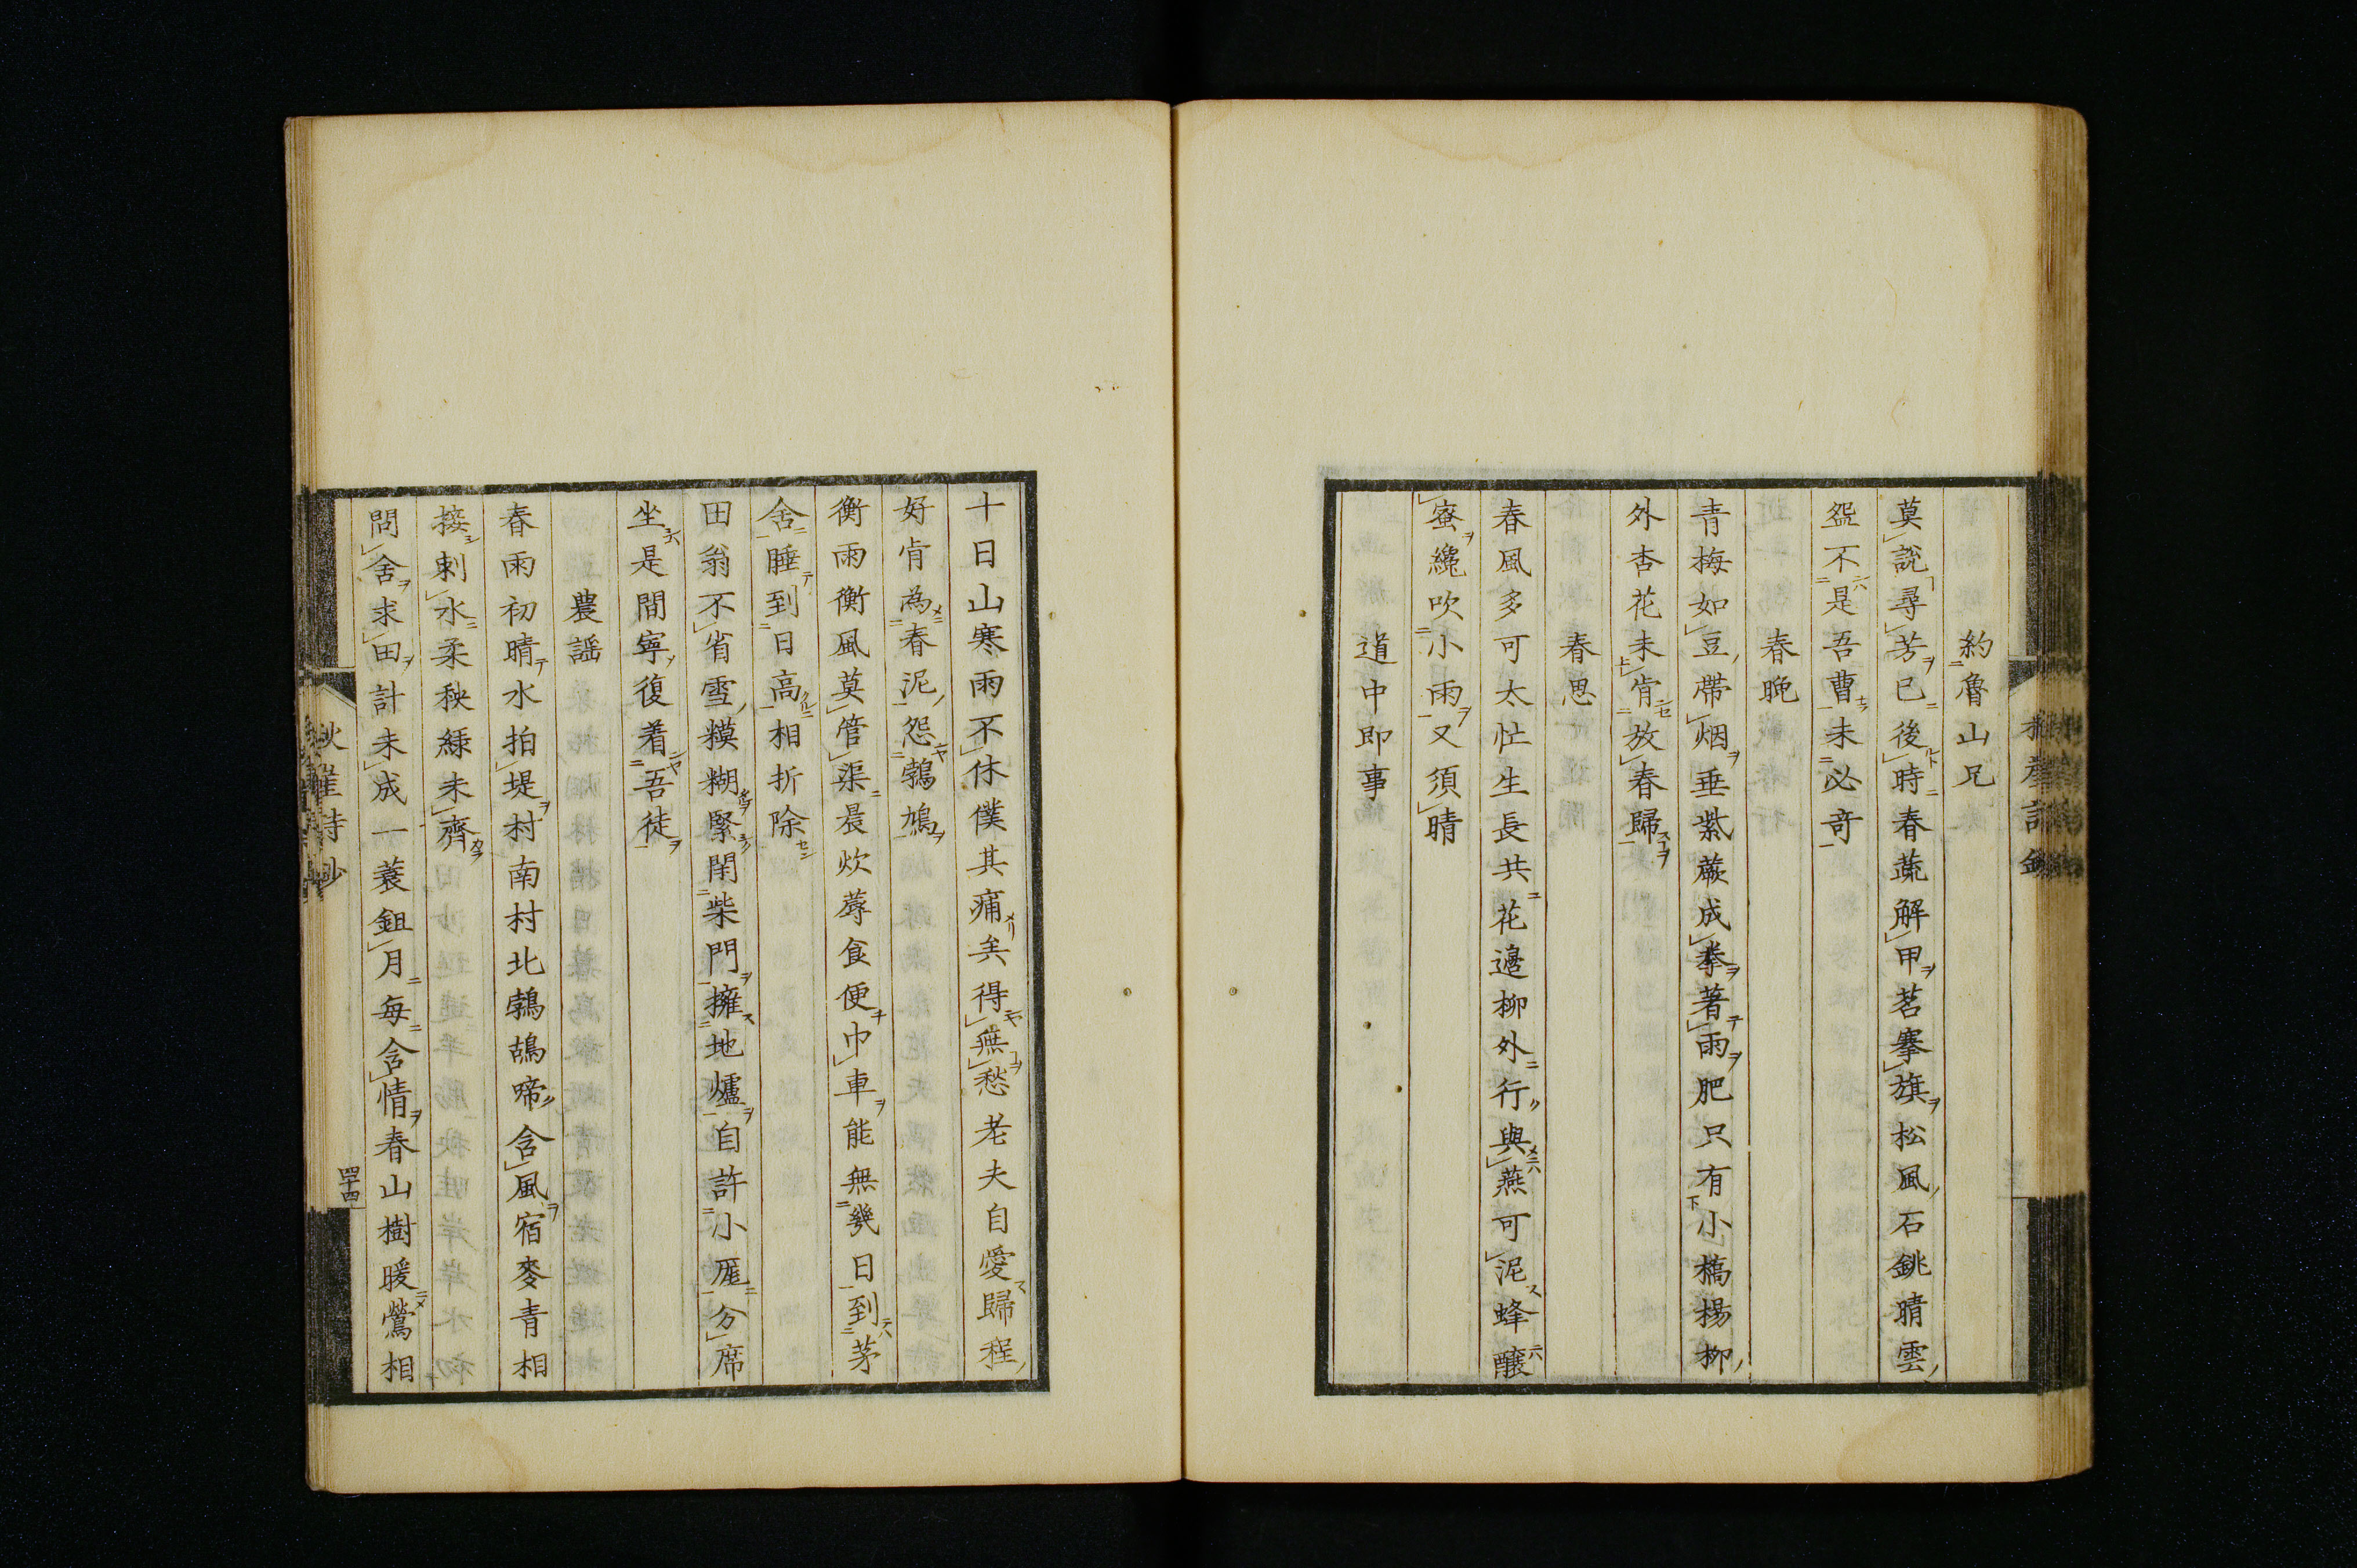 約魯山兄
莫說尋芳已後時春蔬解甲茗搴旗松風石銚晴雲
盌不是吾曹未必奇
春晩
青梅如豆帶烟垂紫蕨成拳著雨肥只有小橋楊柳
外杏花未肯放春歸
春思
春風多可太忙生長共花邉柳外行與燕可泥蜂釀
蜜纔吹小雨又須晴
道中即事
十日山寒雨不休僕其痡矣得無愁老夫自愛歸程
好肯為春泥怨鵓鳩
衡雨衡風莫管渠晨炊蓐食便巾車能無幾日到茅
舍睡到日高相折除
田翁不省雪糢糊緊閉柴門擁地爐自許小厖分席
坐是間寧復着吾徒
農謡
春雨初晴水拍堤村南村北鵓鴣啼含風宿麥青相
接刺水柔秧緑未齊
問舍求田計未成一蓑鉏月每含情春山樹暖鶯相
秋崖詩鈔
四十四